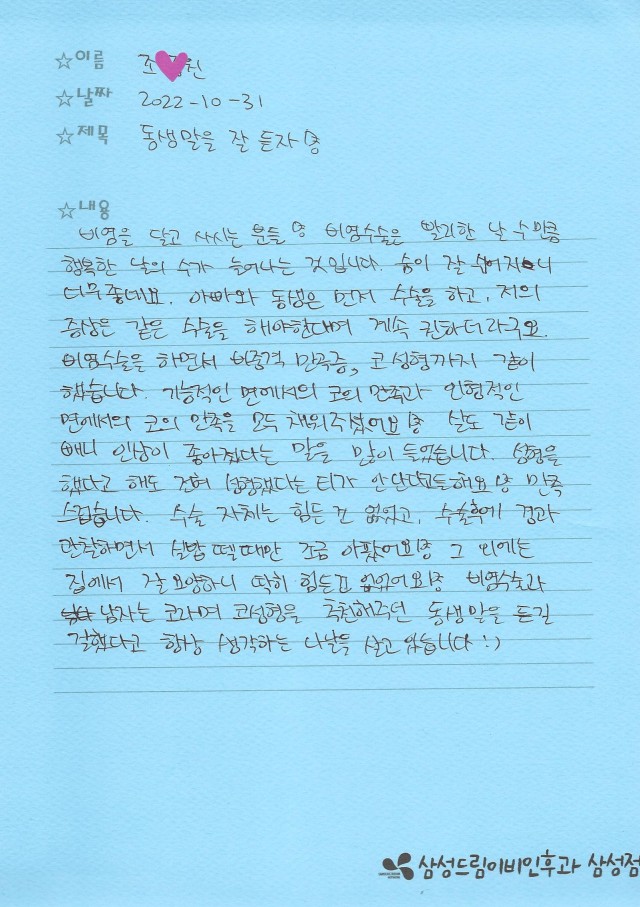 ☆이름 조 원
☆날짜 2022-10-31
☆제목 동생말을 잘 듣자
☆내용
비염을 달고 사시는 분들 비염수술은 빨리한 날 수만큼
행복한 날의 수가 늘어나는 것입니다. 숨이 잘 쉬어지니
너무좋네요. 아빠와 동생은 먼저 수술을 하고, 저의
증상은 같은 수술을 해야한대며 계속 권하더라구요.
비염수술을 하면서 비중격 만곡증, 코성형까지 같이
했습니다. 기능적인 면에서의 코의 만족과 외형적인
면에서의 코의 만족을 모두 채워주셨어요 살도 같이
빼니 인상이 좋아졌다는 말을 많이 들었습니다. 성형을
했다고 해도 전혀 성형했다는 티가 안난다고들해요 만족
스럽습니다. 수술 자체는 힘든 건 없었고, 수술후에 경과
관찰하면서 실밥 뗄때만 조금 아팠어요 그 외에는
집에서 잘 요양하니 딱히 힘든건 없었어요 비염수술과
남자는 코라며 코성형을 추천해주던 동생말을 듣길
잘했다고 항상 생각하는 나날을 살고 있습니다 :)
삼성드림이비인후과 삼성점